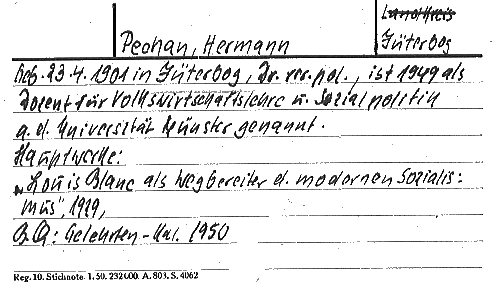 Landkreis
Pechan, Hermann
Jüterbog
Geb. 23.4.1901 in Jüterbog, Dr. rer. pol., ist 1949 als
Dozent für Volkswirtschaftslehre u. Sozialpolitik
a. d. Universität Münster genannt.
Hauptwerke:
"Louis Blanc als Wegbereiter d. modernen Sozialis=
mus", 1929,
Gelehrten-Kal. 1950
Reg. 10. Stichnote. 1. 50. 232000. A. 803. S. 4062